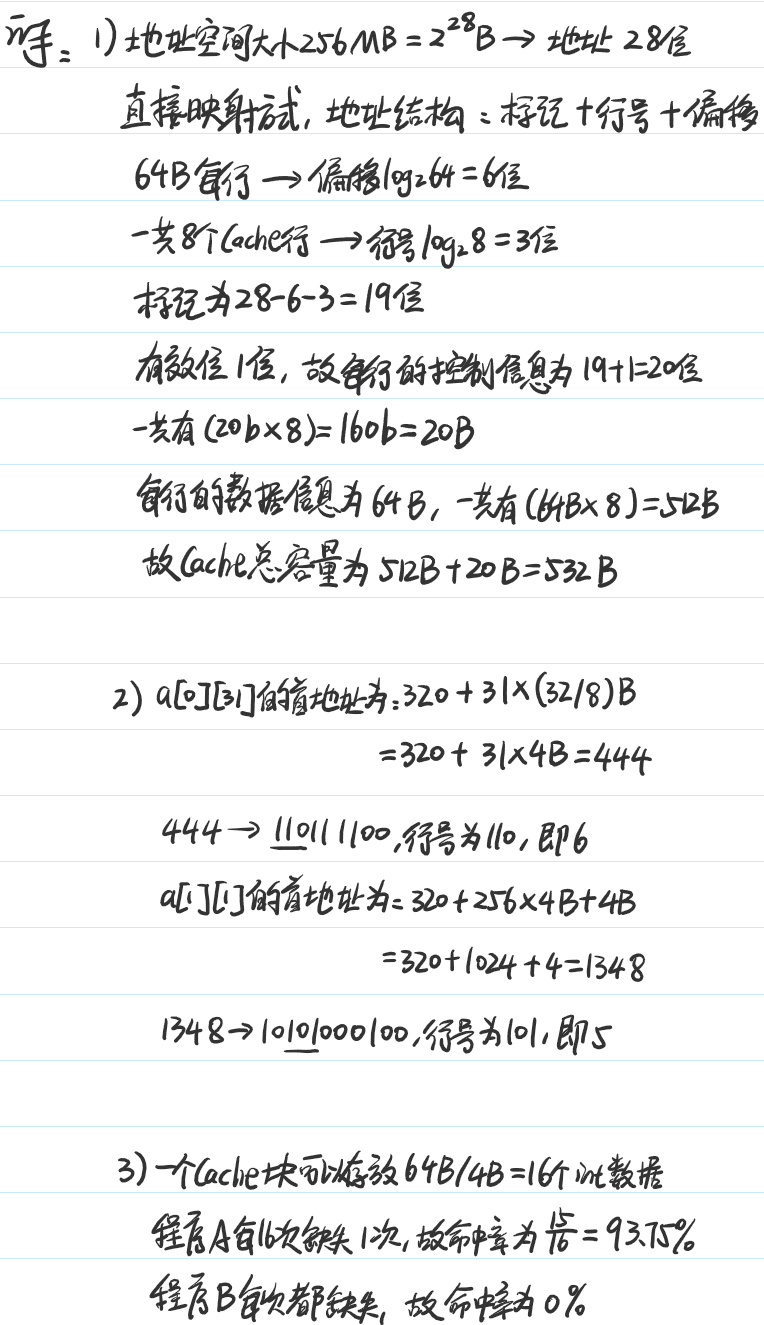 解：1) 地址空间大小256MB=2²⁸B→地址28位
直接映射方式，地址结构：标记+行号+偏移
64B每行→偏移log₂64=6位
一共8个Cache行→行号log₂8=3位
标记为28-6-3=19位
有效位1位，故每行的控制信息为19+1=20位
一共有(20b×8)=160b=20B
每行的数据信息为64B，一共有(64B×8)=512B
故Cache总容量为512B+20B=532B
2) a[0][31]的首地址为：320+31×(32/8)B
=320+31×4B=444
444→110111100，行号为110，即6
a[1][1]的首地址为：320+256×4B+4B
=320+1024+4=1348
1348→10101000100，行号为101，即5
3) 一个Cache块可以存放64B/4B=16个int数据
程序A每16次缺失1次，故命中率为15/16=93.75%
程序B每次都缺失，故命中率为0%